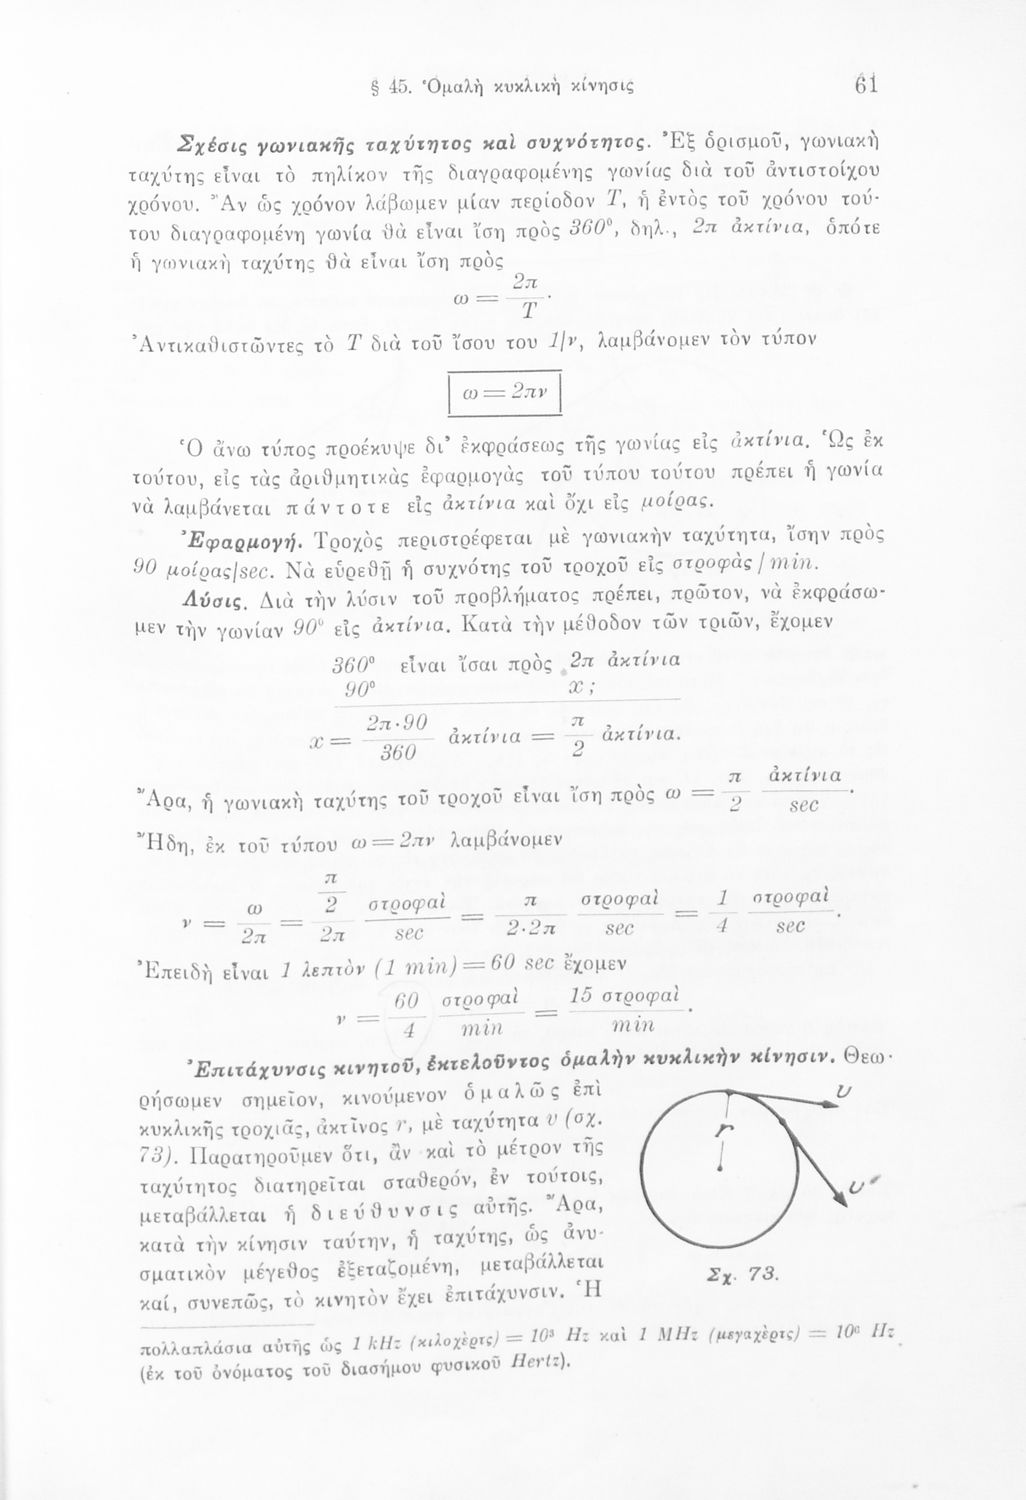 § 45. Ὁμαλὴ κυκλικὴ κίνησις 61
Σχέσις γωνιακῆς ταχύτητος καὶ συχνότητος. Ἐξ ὁρισμοῦ, γωνιακὴ
ταχύτης εἶναι τὸ πηλίκον τῆς διαγραφομένης γωνίας διὰ τοῦ ἀντιστοίχου
χρόνου. Ἂν ὡς χρόνον λάβωμεν μίαν περίοδον T, ἡ ἐντὸς τοῦ χρόνου τού-
του διαγραφομένη γωνία θὰ εἶναι ἴση πρὸς 360⁰, δηλ., 2π ἀκτίνια, ὁπότε
ἡ γωνιακὴ ταχύτης θὰ εἶναι ἴση πρὸς
ω = 2π / T ·
Ἀντικαθιστῶντες τὸ T διὰ τοῦ ἴσου του 1/ν, λαμβάνομεν τὸν τύπον
ω = 2πν
Ὁ ἄνω τύπος προέκυψε δι᾽ ἐκφράσεως τῆς γωνίας εἰς ἀκτίνια. Ὡς ἐκ
τούτου, εἰς τὰς ἀριθμητικὰς ἐφαρμογὰς τοῦ τύπου τούτου πρέπει ἡ γωνία
νὰ λαμβάνεται πάντοτε εἰς ἀκτίνια καὶ ὄχι εἰς μοίρας.
Ἐφαρμογή. Τροχὸς περιστρέφεται μὲ γωνιακὴν ταχύτητα, ἴσην πρὸς
90 μοίρας/sec. Νὰ εὑρεθῇ ἡ συχνότης τοῦ τροχοῦ εἰς στροφὰς / min.
Λύσις. Διὰ τὴν λύσιν τοῦ προβλήματος πρέπει, πρῶτον, νὰ ἐκφράσω-
μεν τὴν γωνίαν 90⁰ εἰς ἀκτίνια. Κατὰ τὴν μέθοδον τῶν τριῶν, ἔχομεν
360⁰ εἶναι ἴσαι πρὸς 2π ἀκτίνια
90⁰ x ;
x = 2π·90 / 360 ἀκτίνια = π / 2 ἀκτίνια.
Ἄρα, ἡ γωνιακὴ ταχύτης τοῦ τροχοῦ εἶναι ἴση πρὸς ω = π / 2 ἀκτίνια / sec ·
Ἤδη, ἐκ τοῦ τύπου ω = 2πν λαμβάνομεν
ν = ω / 2π = π/2 / 2π στροφαὶ / sec = π / 2·2π στροφαὶ / sec = 1 / 4 στροφαὶ / sec ·
Ἐπειδὴ εἶναι 1 λεπτὸν (1 min) = 60 sec ἔχομεν
ν = 60 / 4 στροφαὶ / min = 15 στροφαὶ / min ·
Ἐπιτάχυνσις κινητοῦ, ἐκτελοῦντος ὁμαλὴν κυκλικὴν κίνησιν. Θεω-
ρήσωμεν σημεῖον, κινούμενον ὁμαλῶς ἐπὶ
κυκλικῆς τροχιᾶς, ἀκτῖνος r, μὲ ταχύτητα υ (σχ.
73). Παρατηροῦμεν ὅτι, ἂν καὶ τὸ μέτρον τῆς
ταχύτητος διατηρεῖται σταθερόν, ἐν τούτοις,
μεταβάλλεται ἡ διεύθυνσις αὐτῆς. Ἄρα,
κατὰ τὴν κίνησιν ταύτην, ἡ ταχύτης, ὡς ἀνυ-
σματικὸν μέγεθος ἐξεταζομένη, μεταβάλλεται
καί, συνεπῶς, τὸ κινητὸν ἔχει ἐπιτάχυνσιν. Ἡ
υ
r
υ′
Σχ. 73.
πολλαπλάσια αὐτῆς ὡς 1 kHz (κιλοχὲρτς) = 10³ Hz καὶ 1 MHz (μεγαχὲρτς) = 10⁶ Hz
(ἐκ τοῦ ὀνόματος τοῦ διασήμου φυσικοῦ Hertz).